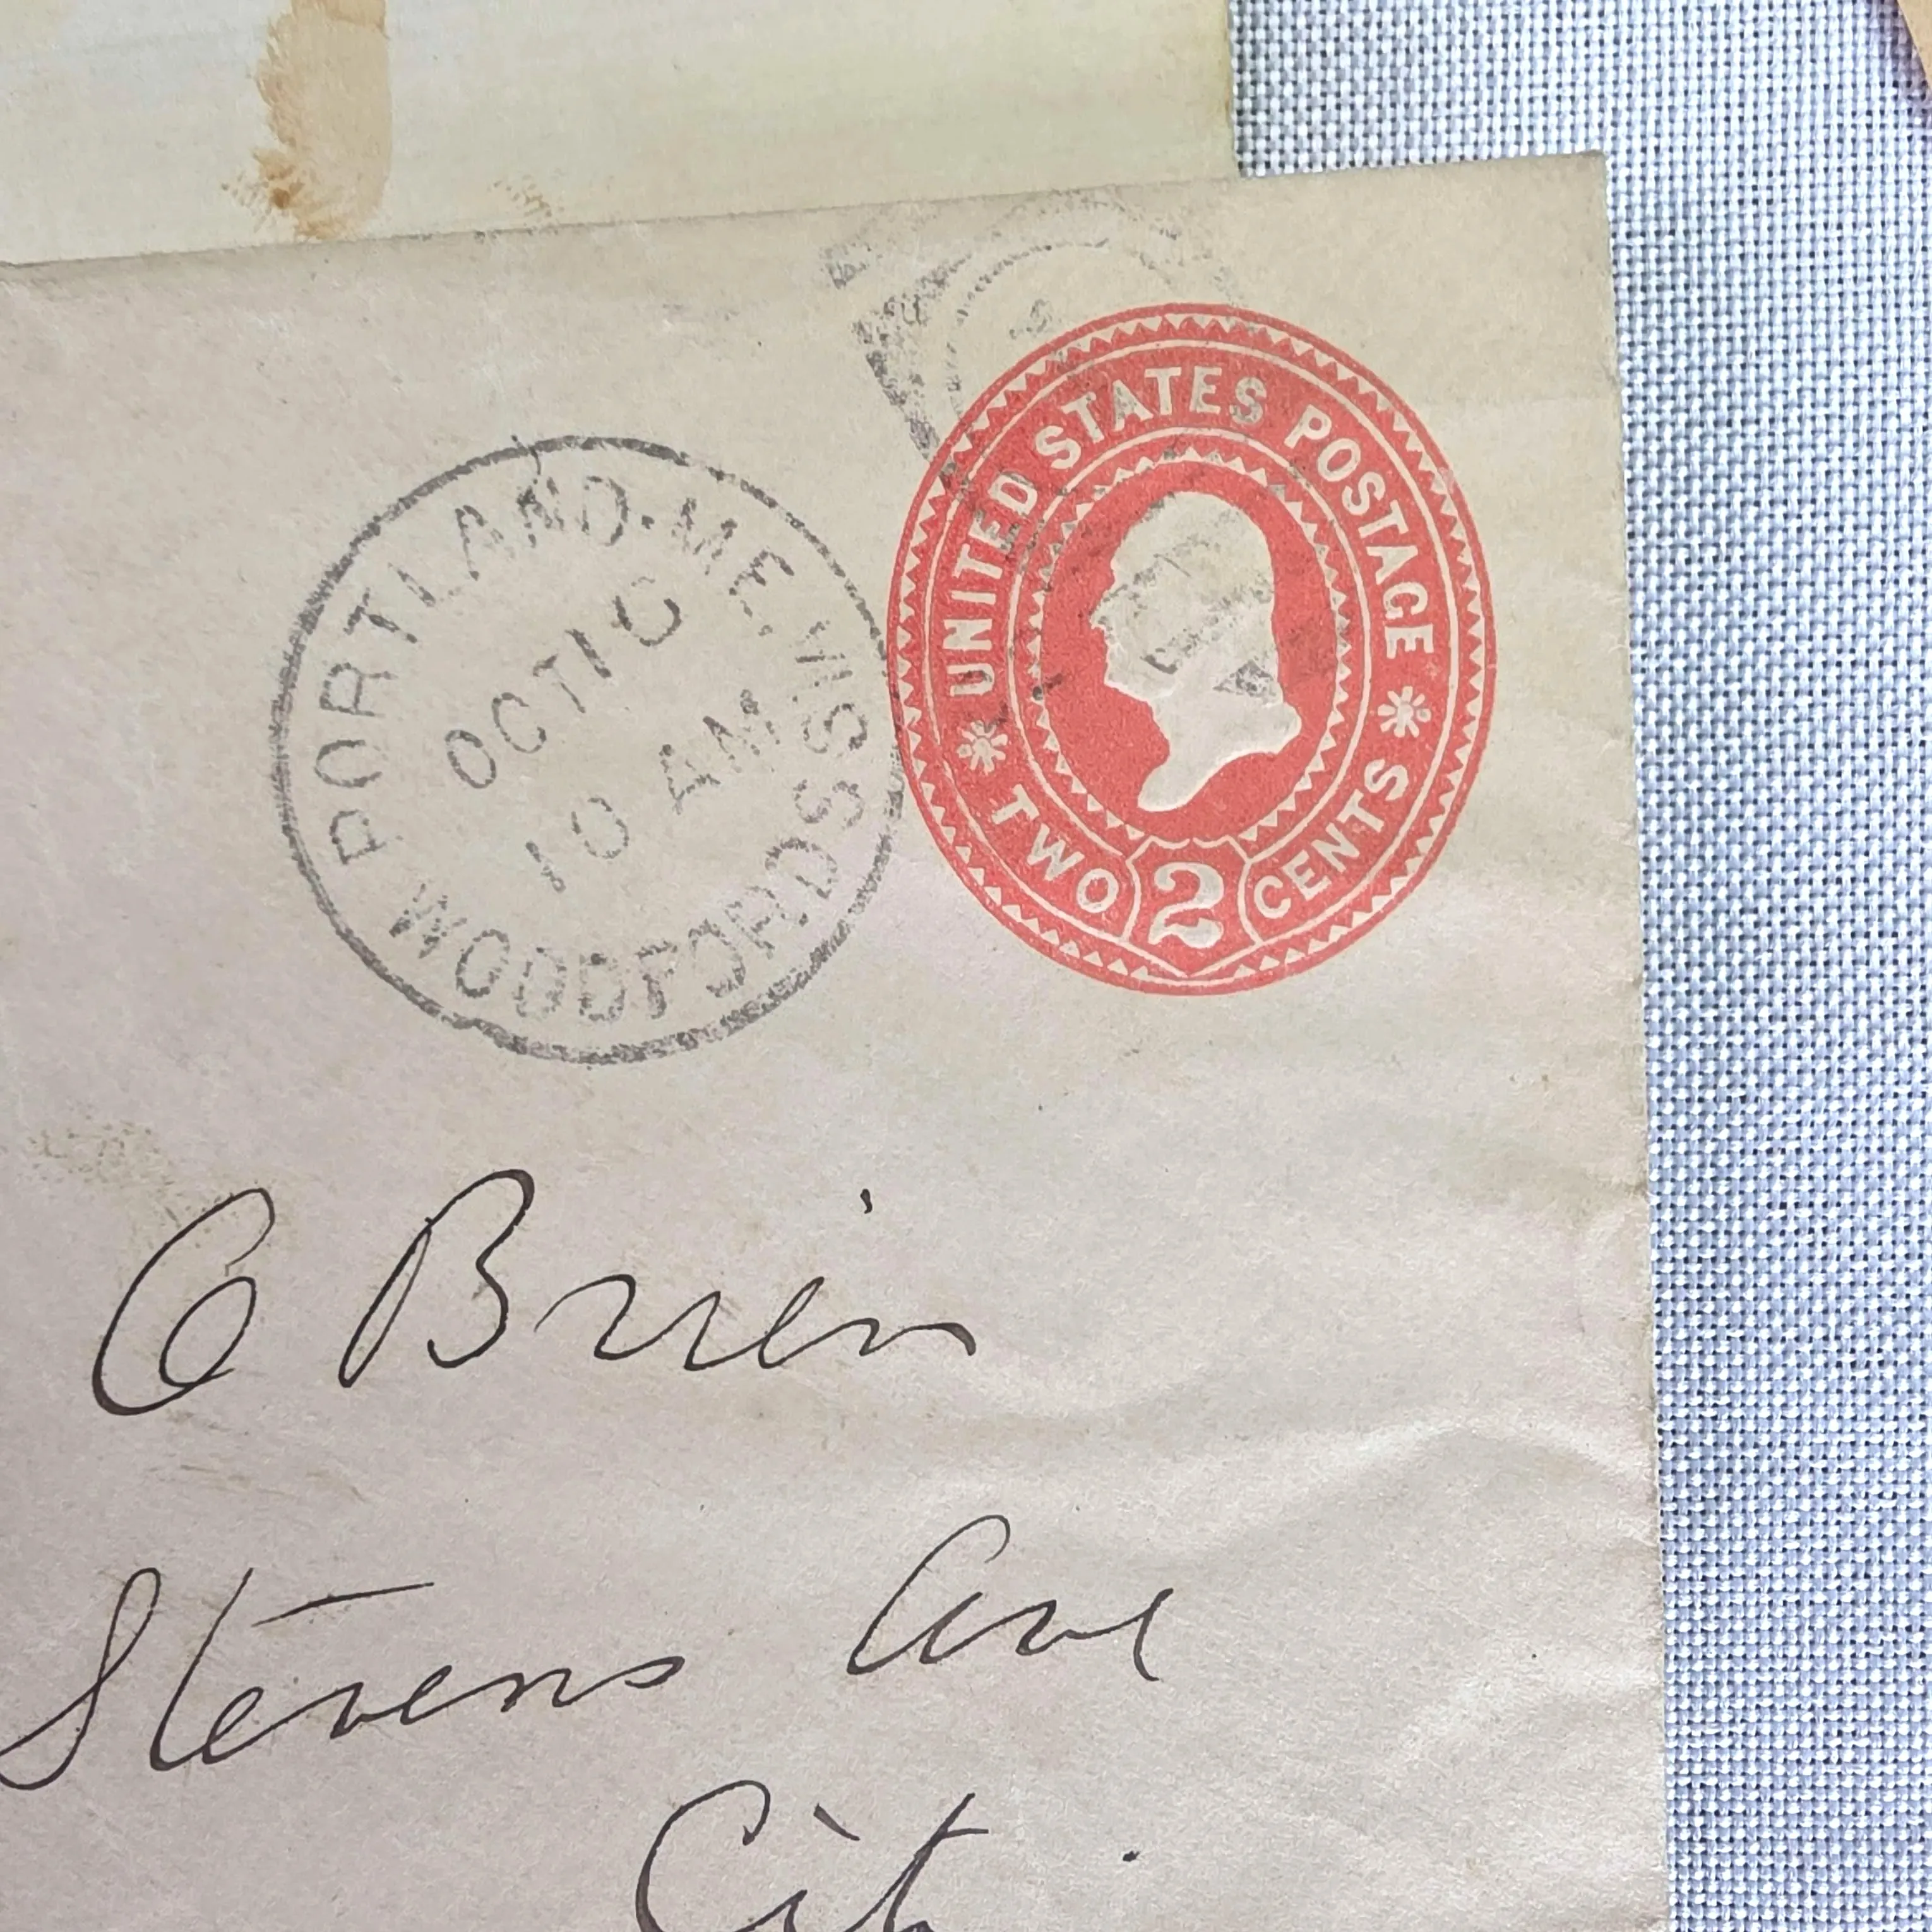 PORTLAND·ME. WIS
OCT 10
10 AM
WOODFORDS
UNITED STATES POSTAGE
TWO 2 CENTS
O Brien
Stevens Ave
City